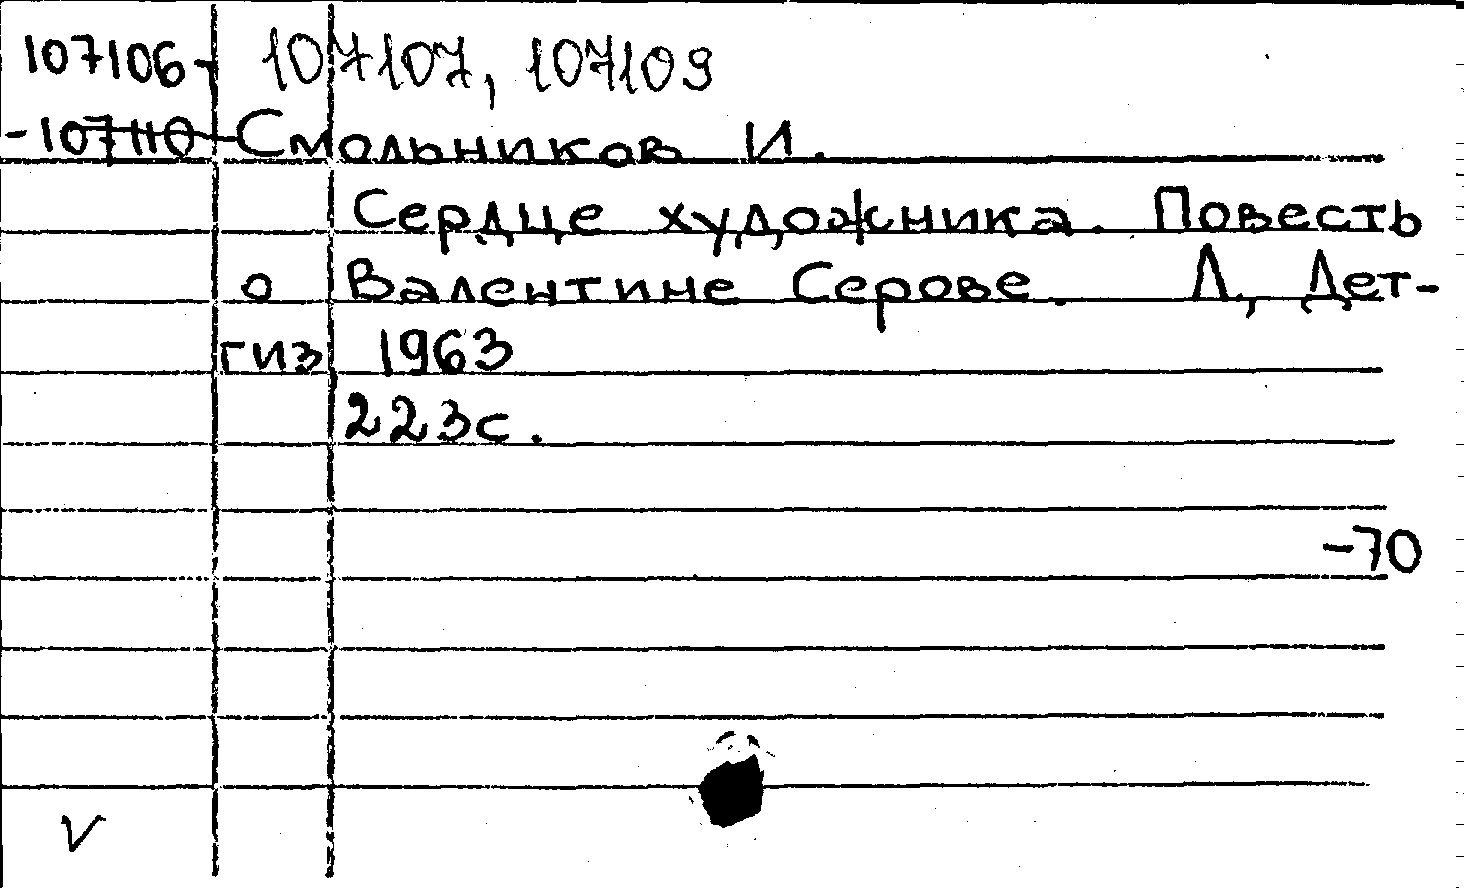 107106- 107107, 107109
-107110 Смольников И.
Сердце художника. Повесть
о Валентине Серове. Л., Дет-
гиз, 1963
223с.
-70
V